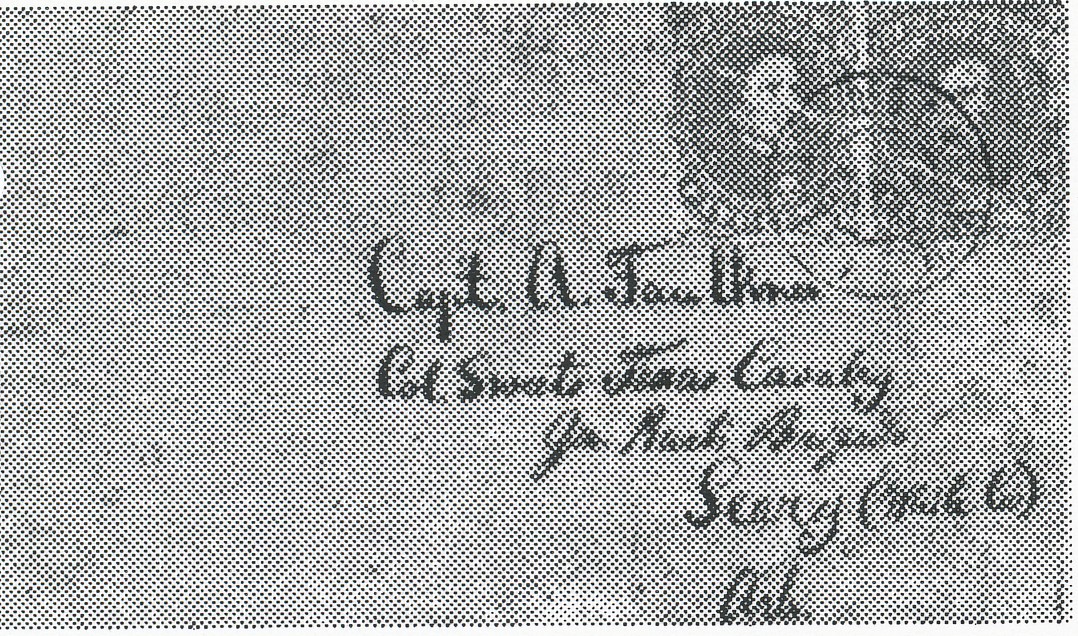 Capt. A. Faulkner
Col. Sweets Texas Cavalry
Brigade
Searcy (White Co)
Ark.